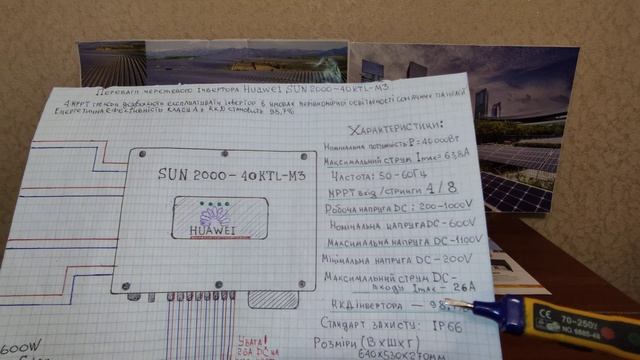 Переваги мережевого інвертора Huawei SUN2000-40KTL-M3
4 MPPT трекери дозволяють експлуатувати інвертор в умовах нерівномірної освітленості сонячних панелей
Енергетична ефективність класу А ККД становить 98,7%
Характеристики:
Номінальна потужність P=40000Вт
Максимальний струм Imax= 63,8А
Частота: 50-60Гц
MPPT вхід/стринги 4/8
Робоча напруга DC: 200-1000V
Номінальна напруга DC-600V
Максимальна напруга DC-1100V
Мінімальна напруга DC-200V
Максимальний струм DC-
входу Imax - 26А
ККД інвертора — 98,7%
Стандарт захисту: IP66
Розміри (ВхШхГ)
640x530x270мм
SUN 2000-40KTL-M3
HUAWEI
600W
Увага!
26А DC на
CE
70-250V